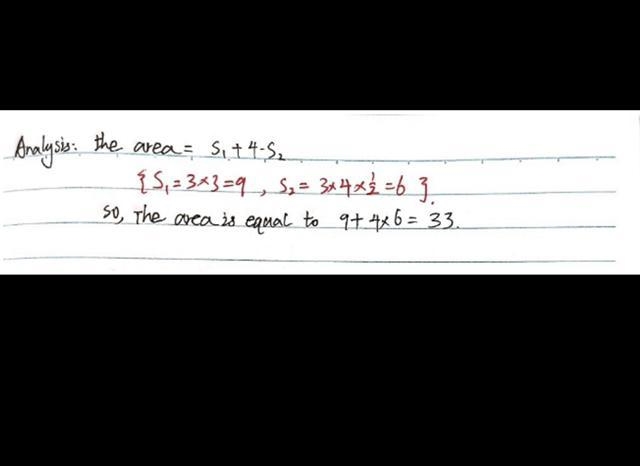 Analysis: the area = S₁ + 4·S₂
{S₁ = 3×3 = 9 , S₂ = 3×4×½ = 6 }.
so, The area is equal to 9 + 4×6 = 33.